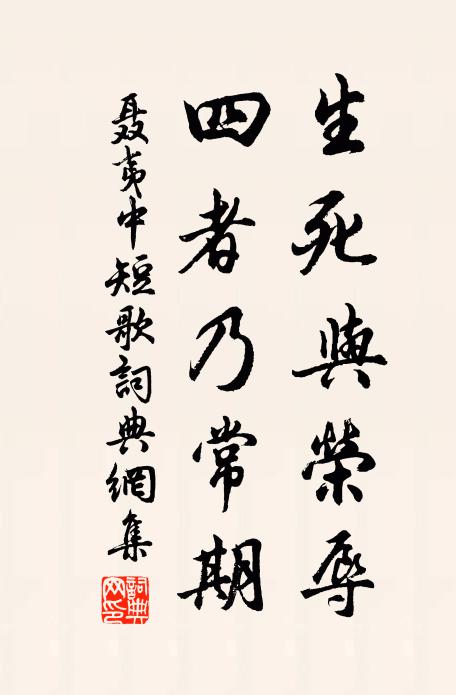 生死與榮辱
四者乃常期
聂夷中短歌詞典網集
詞典网印